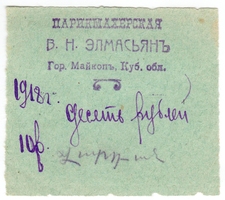 ПАРИКМАХЕРСКАЯ
В. Н. ЭЛМАСЬЯНЪ
Гор. Майкопъ, Куб. обл.
1918 г.
Десеть рублей
10 р.